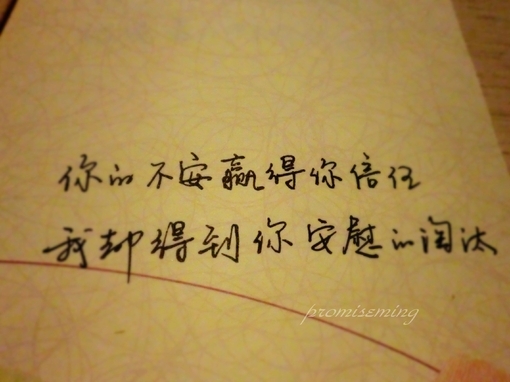 你的不安赢得你信任
我却得到你安慰的淘汰
promiseming